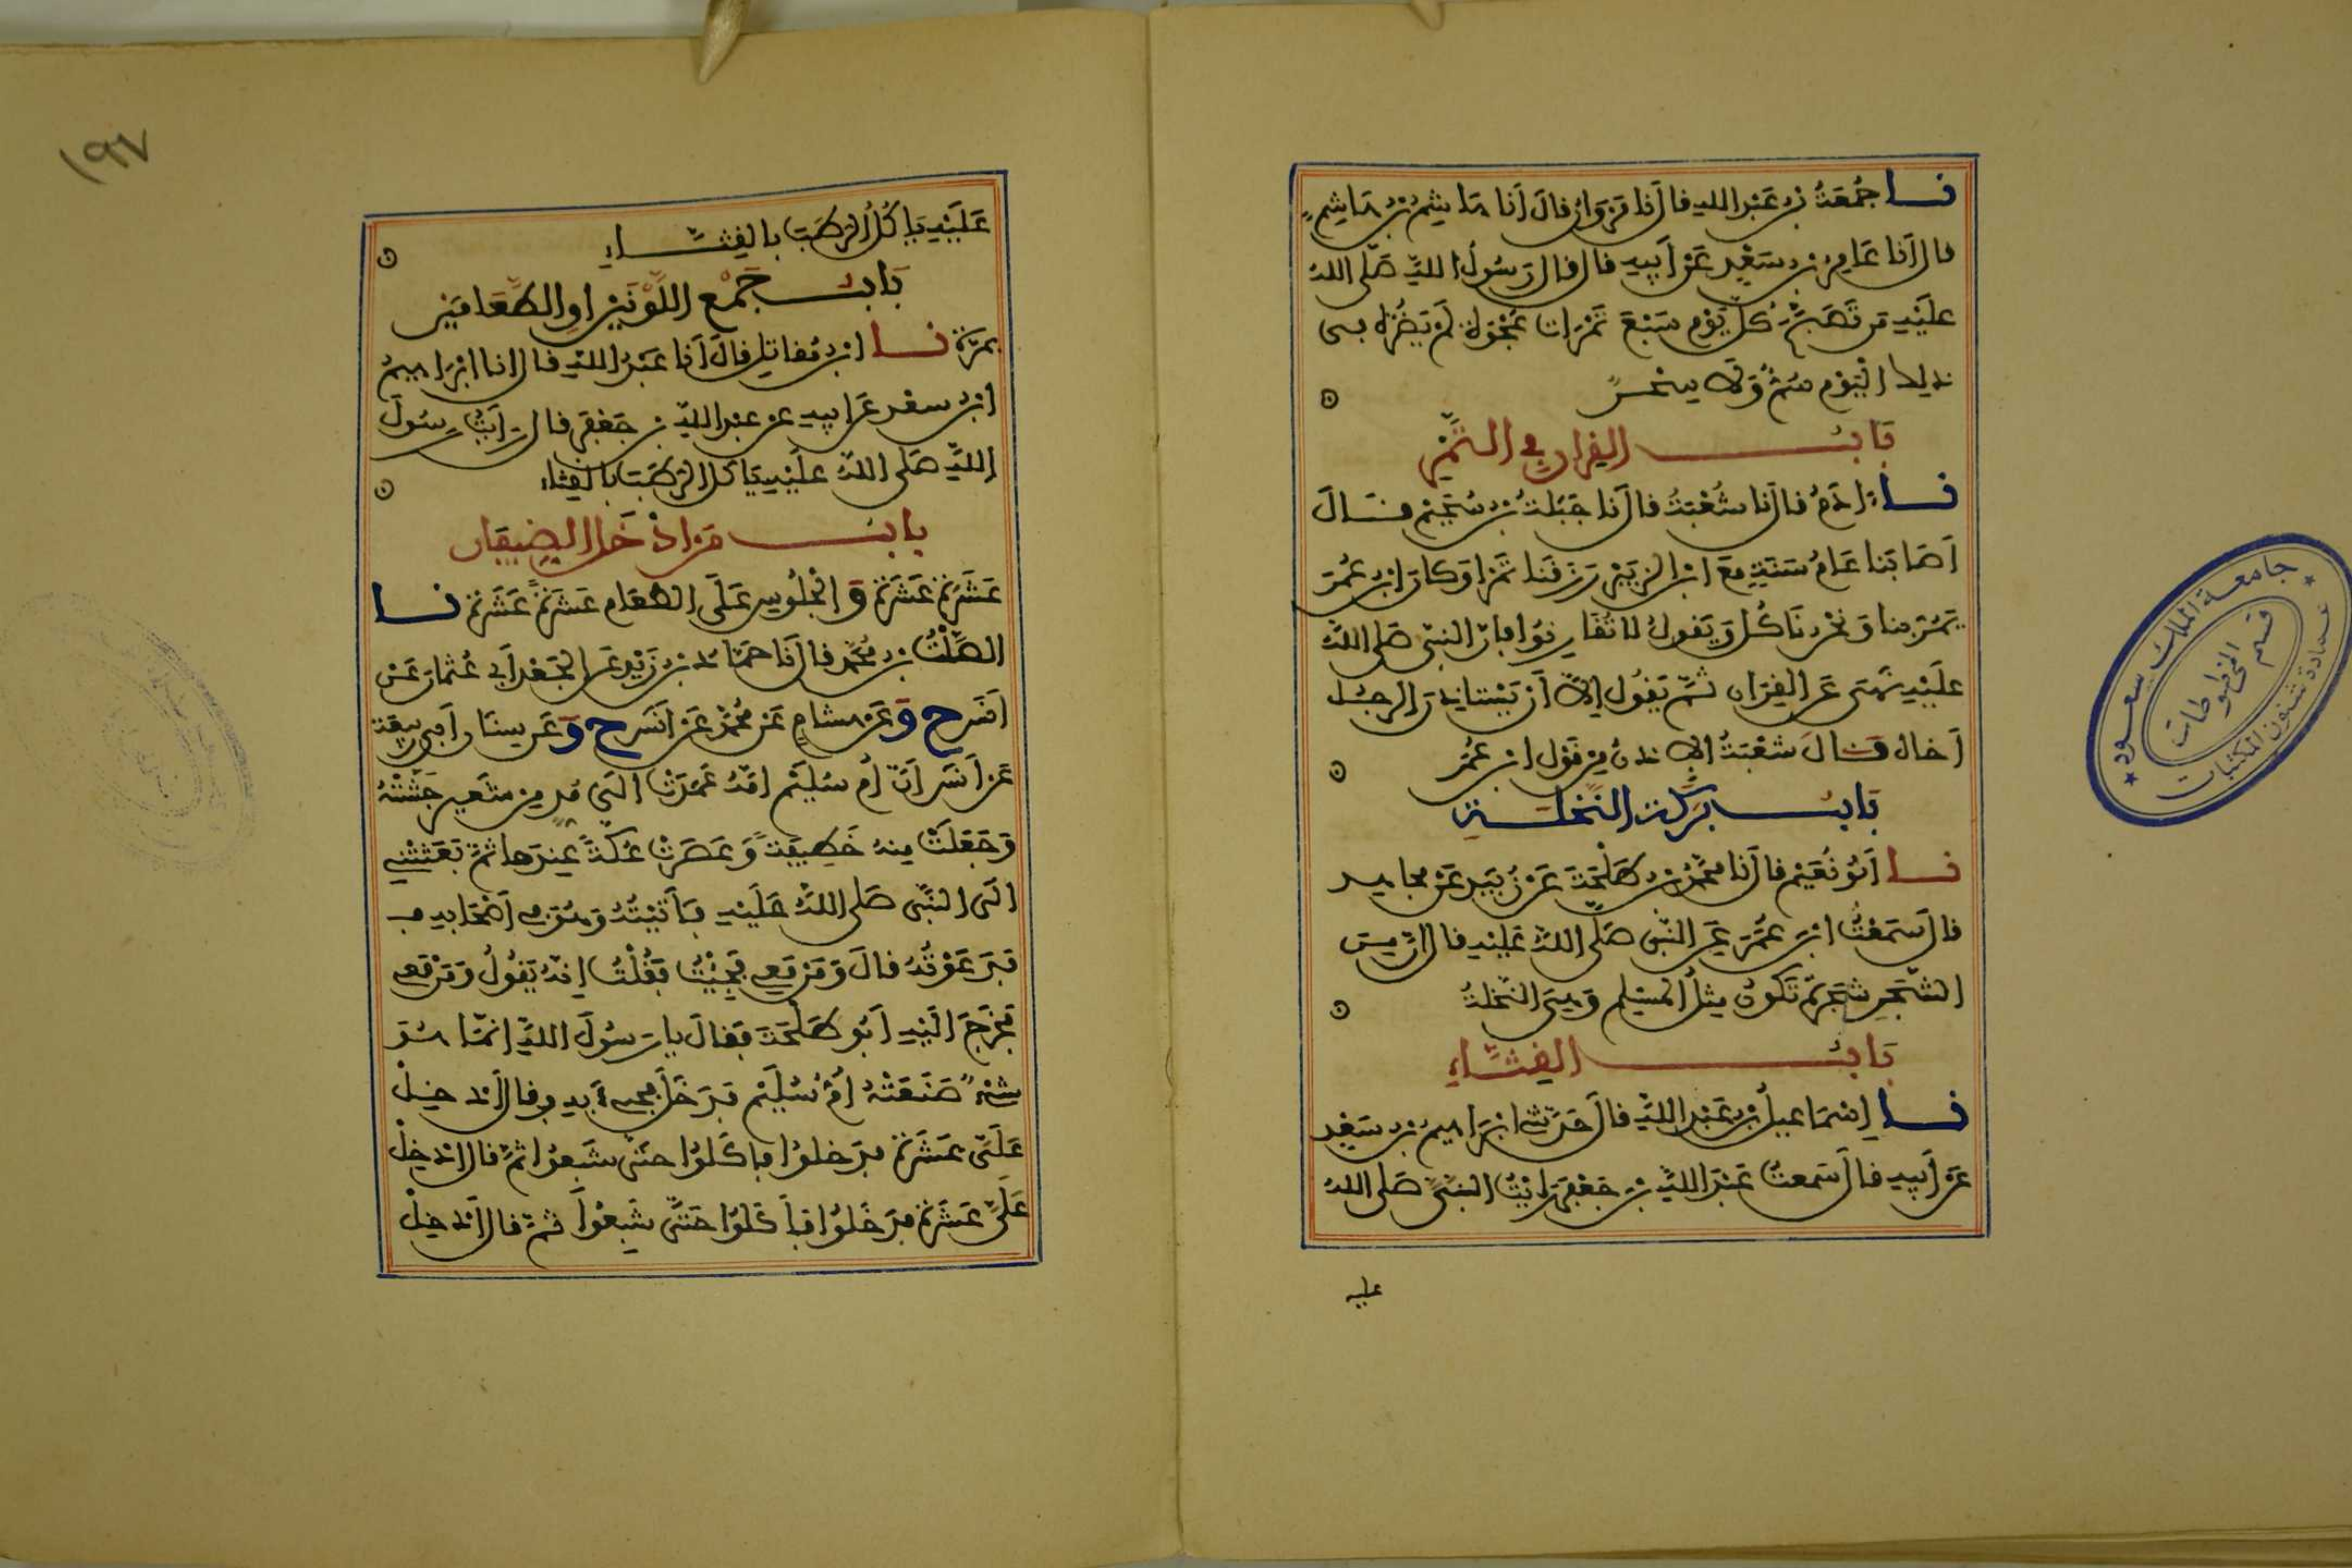 نا جُمْعَةُ بن عَبْد الله قال أنا مَرْوَان قالَ أنا هَاشِمُ بن هَاشِمٍ
قال أنا عَامِرُ بن سَعْدٍ عَنْ أبِيهِ قال قال رَسُولُ اللَّهِ صَلى اللهُ
عَلَيْهِ مَن تَصَبَّحَ كلَّ يَوْم سَبْعَ تَمْرَات عَجْوَة لَمْ يَضُرَّهُ في
ذلِكَ اليَوْم سُمٌّ وَلا سِحْرٌ
بَابُ القِران في التَّمْرِ
نا ءادَمُ قال نا شُعْبَةُ قال نا جَبَلَةُ بن سُحَيْمٍ قَالَ
أصَابَنا عَامُ سَنَةٍ مَعَ ابن الزبَيْرِ رَزَقَنا تَمْرا وَكان ابن عُمَرَ
يَمُرّ بنا وَنَحْن نَاكُل وَيَقولُ لا تُقَارنُوا فإن النبي صَلى اللهُ
عَلَيْهِ نَهَى عَن القِرَان ثمّ يَقُول إلاَّ أنْ يَسْتاذِنَ الرجُل
أخاهُ قَالَ شُعْبَةُ الإذنُ مِن قَوْل ابن عُمَرَ
بَابُ بَرَكَة النَّخلَةِ
نا أبُو نُعَيْم قال نا محَمَّدُ بن طَلْحَةَ عَن زُبَيْدٍ عَن مجاهِد
قال سَمَعْتُ ابن عُمَرَ عَن النَّبي صَلى اللهُ عَلَيْهِ قال إن مِن
الشّجَرِ شَجَرَةً تَكُونُ مِثْلَ المُسْلِمِ وَهِيَ النَّخلَةُ
بَابُ القِثّاءِ
نا إسْمَاعِيلُ بن عَبْد اللَّهِ قالَ حَدَّثني ابْرَاهِيمُ بن سَعْدٍ
عَن أبِيهِ قال سَمعتُ عَبْدَ اللَّهِ بن جَعْفَر رَأيْتُ النبيَّ صَلى اللهُ
عليه
١٩٧
عَلَيْهِ يَاكُلُ الرُّطَبَ بالقِثَّاءِ
بَابُ جَمْع اللَّوْنَيْنِ او الطَّعَامَيْنِ
بمَرَّة نا ابن مُقاتِل قالَ أنا عَبْدُ اللَّهِ قال انا ابْرَاهِيمُ
ابن سعْد عَن ابيهِ عن عبْد اللَّهِ بن جَعْفَر قال رَأيْتُ رسُولَ
اللَّهِ صَلى اللهُ عَلَيْهِ يَاكل الرُّطَبَ بالقِثاء
بابُ مَن ادْخَلَ الضِيفَان
عَشَرَةً عَشَرَةً وَالجُلُوسِ عَلَى الطَّعَام عَشَرَةً عَشَرَةً نا
الصَّلْتُ بن مُحَمَّد قال نا حَمَّادُ بن زَيْدٍ عَن الجَعْد أبي عُثمَان عَن
أنَس ح وَعَن هشام عَن مُحَمَّد عَن أنَس ح وَعَن سِنَان أبي رَبِيعَة
عَن أنَس أنّ أمّ سُلَيْم امّهُ عَمَدَتْ الى مُد مِن شَعير جَشَّتْهُ
وَجَعَلَتْ مِنْهُ خَطِيفَةً وَعَصَرَتْ عُكّةً عِنْدَها ثمّ بَعَثَتْني
الى النَّبي صَلى اللَّهُ عَلَيْهِ فَأتَيْتُهُ وَهُوَ في أصْحَابِهِ
فدَعَوْتُهُ قالَ وَمَن مَعي فَجِئْتُ فَقُلْتُ إنّهُ يَقُولُ وَمَنْ مَعي
فَخَرَجَ الَيْهِ أبُو طَلْحَةَ فَقالَ يا رَسُولَ اللَّهِ إنَّمَا هُوَ
شَيْءٌ صَنَعَتْهُ أمُّ سُلَيْم فَدَخَلَ فجيء بِهِ وقال أدخِلْ
عَلَيَّ عَشَرَةً فدَخلُوا فأكَلُوا حتّى شَبِعُوا ثمّ قال أدْخِلْ
عَلَيَّ عَشَرَةً فدَخَلُوا فأكَلُوا حَتَّى شَبِعُوا ثمّ قال أدْخِلْ
جامعة الملك سعود
عمادة شئون المكتبات
قسم المخطوطات